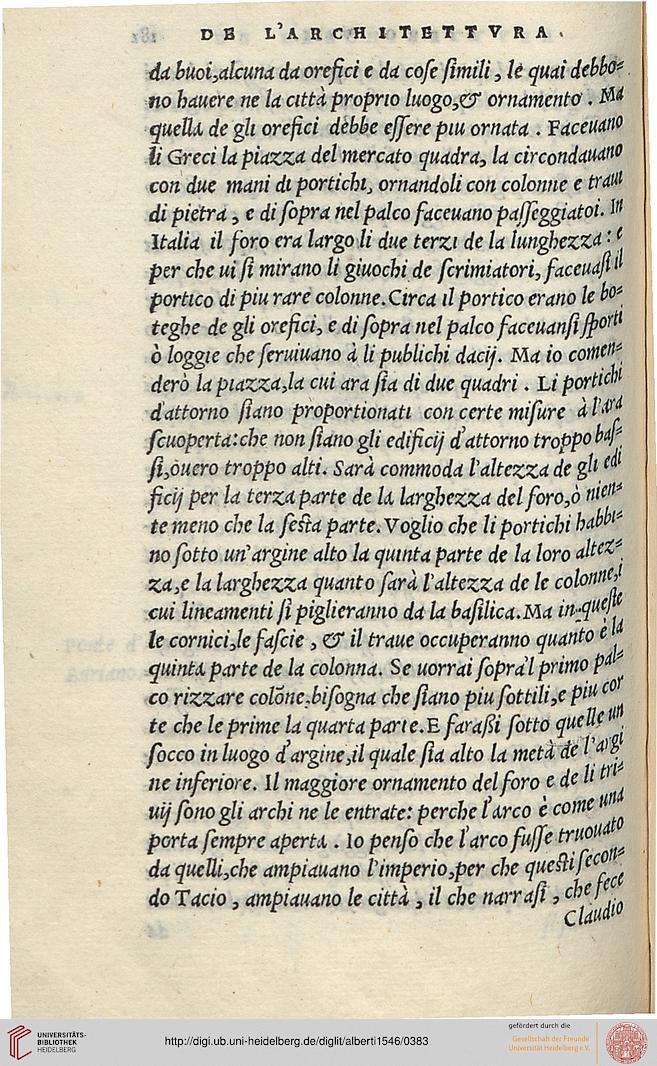 DE L'ARCHITETTVRA.
da buoi,alcuna da orefici e da coſe ſimili, le quai debbo=
no hauere ne la città proprio luogo,& ornamento. Ma
quella de gli orefici debbe eſſere piu ornata. Faceuano
li Greci la piazza del mercato quadra, la circondauano
con due mani di portichi, ornandoli con colonne e traui
di pietra, e di ſopra nel palco faceuano paſſeggiatoi. In
Italia il foro era largo li due terzi de la lunghezza: e
per che ui ſi mirano li giuochi de ſcrimiatori, faceuaſi il
portico di piu rare colonne.Circa il portico erano le bo=
teghe de gli orefici, e di ſopra nel palco faceuanſi ſporti
ò loggie che ſeruiuano à li publichi dacij. Ma io comen=
derò la piazza,la cui ara ſia di due quadri. Li portichi
d'attorno ſiano proportionati con certe miſure à l'ara
ſcuoperta:che non ſiano gli edificij d'attorno troppo baſ=
ſi,òuero troppo alti. Sarà commoda l'altezza de gli edi
ficij per la terza parte de la larghezza del foro,ò nien=
te meno che la ſeſta parte.Voglio che li portichi habbi=
no ſotto un'argine alto la quinta parte de la loro altez=
za,e la larghezza quanto ſarà l'altezza de le colonne,i
cui lineamenti ſi piglieranno da la baſilica.Ma in queſte
le cornici,le faſcie, & il traue occuperanno quanto è la
quinta parte de la colonna. Se uorrai ſopra'l primo pal=
co rizzare colōne,biſogna che ſiano piu ſottili,e piu cor
te che le prime la quarta parte.E faraßi ſotto quelle un
ſocco in luogo d'argine,il quale ſia alto la metà de l'argi
ne inferiore. Il maggiore ornamento del foro e de li tri=
uij ſono gli archi ne le entrate: perche l'arco è come una
porta ſempre aperta. Io penſo che l'arco fuſſe truouato
da quelli,che ampiauano l'imperio,per che queſti ſecon=
do Tacio, ampiauano le città, il che narraſi, che fece
Claudio
UNIVERSITÄTS-
BIBLIOTHEK
HEIDELBERG
http://digi.ub.uni-heidelberg.de/diglit/alberti1546/0383
gefördert durch die
Gesellschaft der Freunde
Universität Heidelberg e.V.